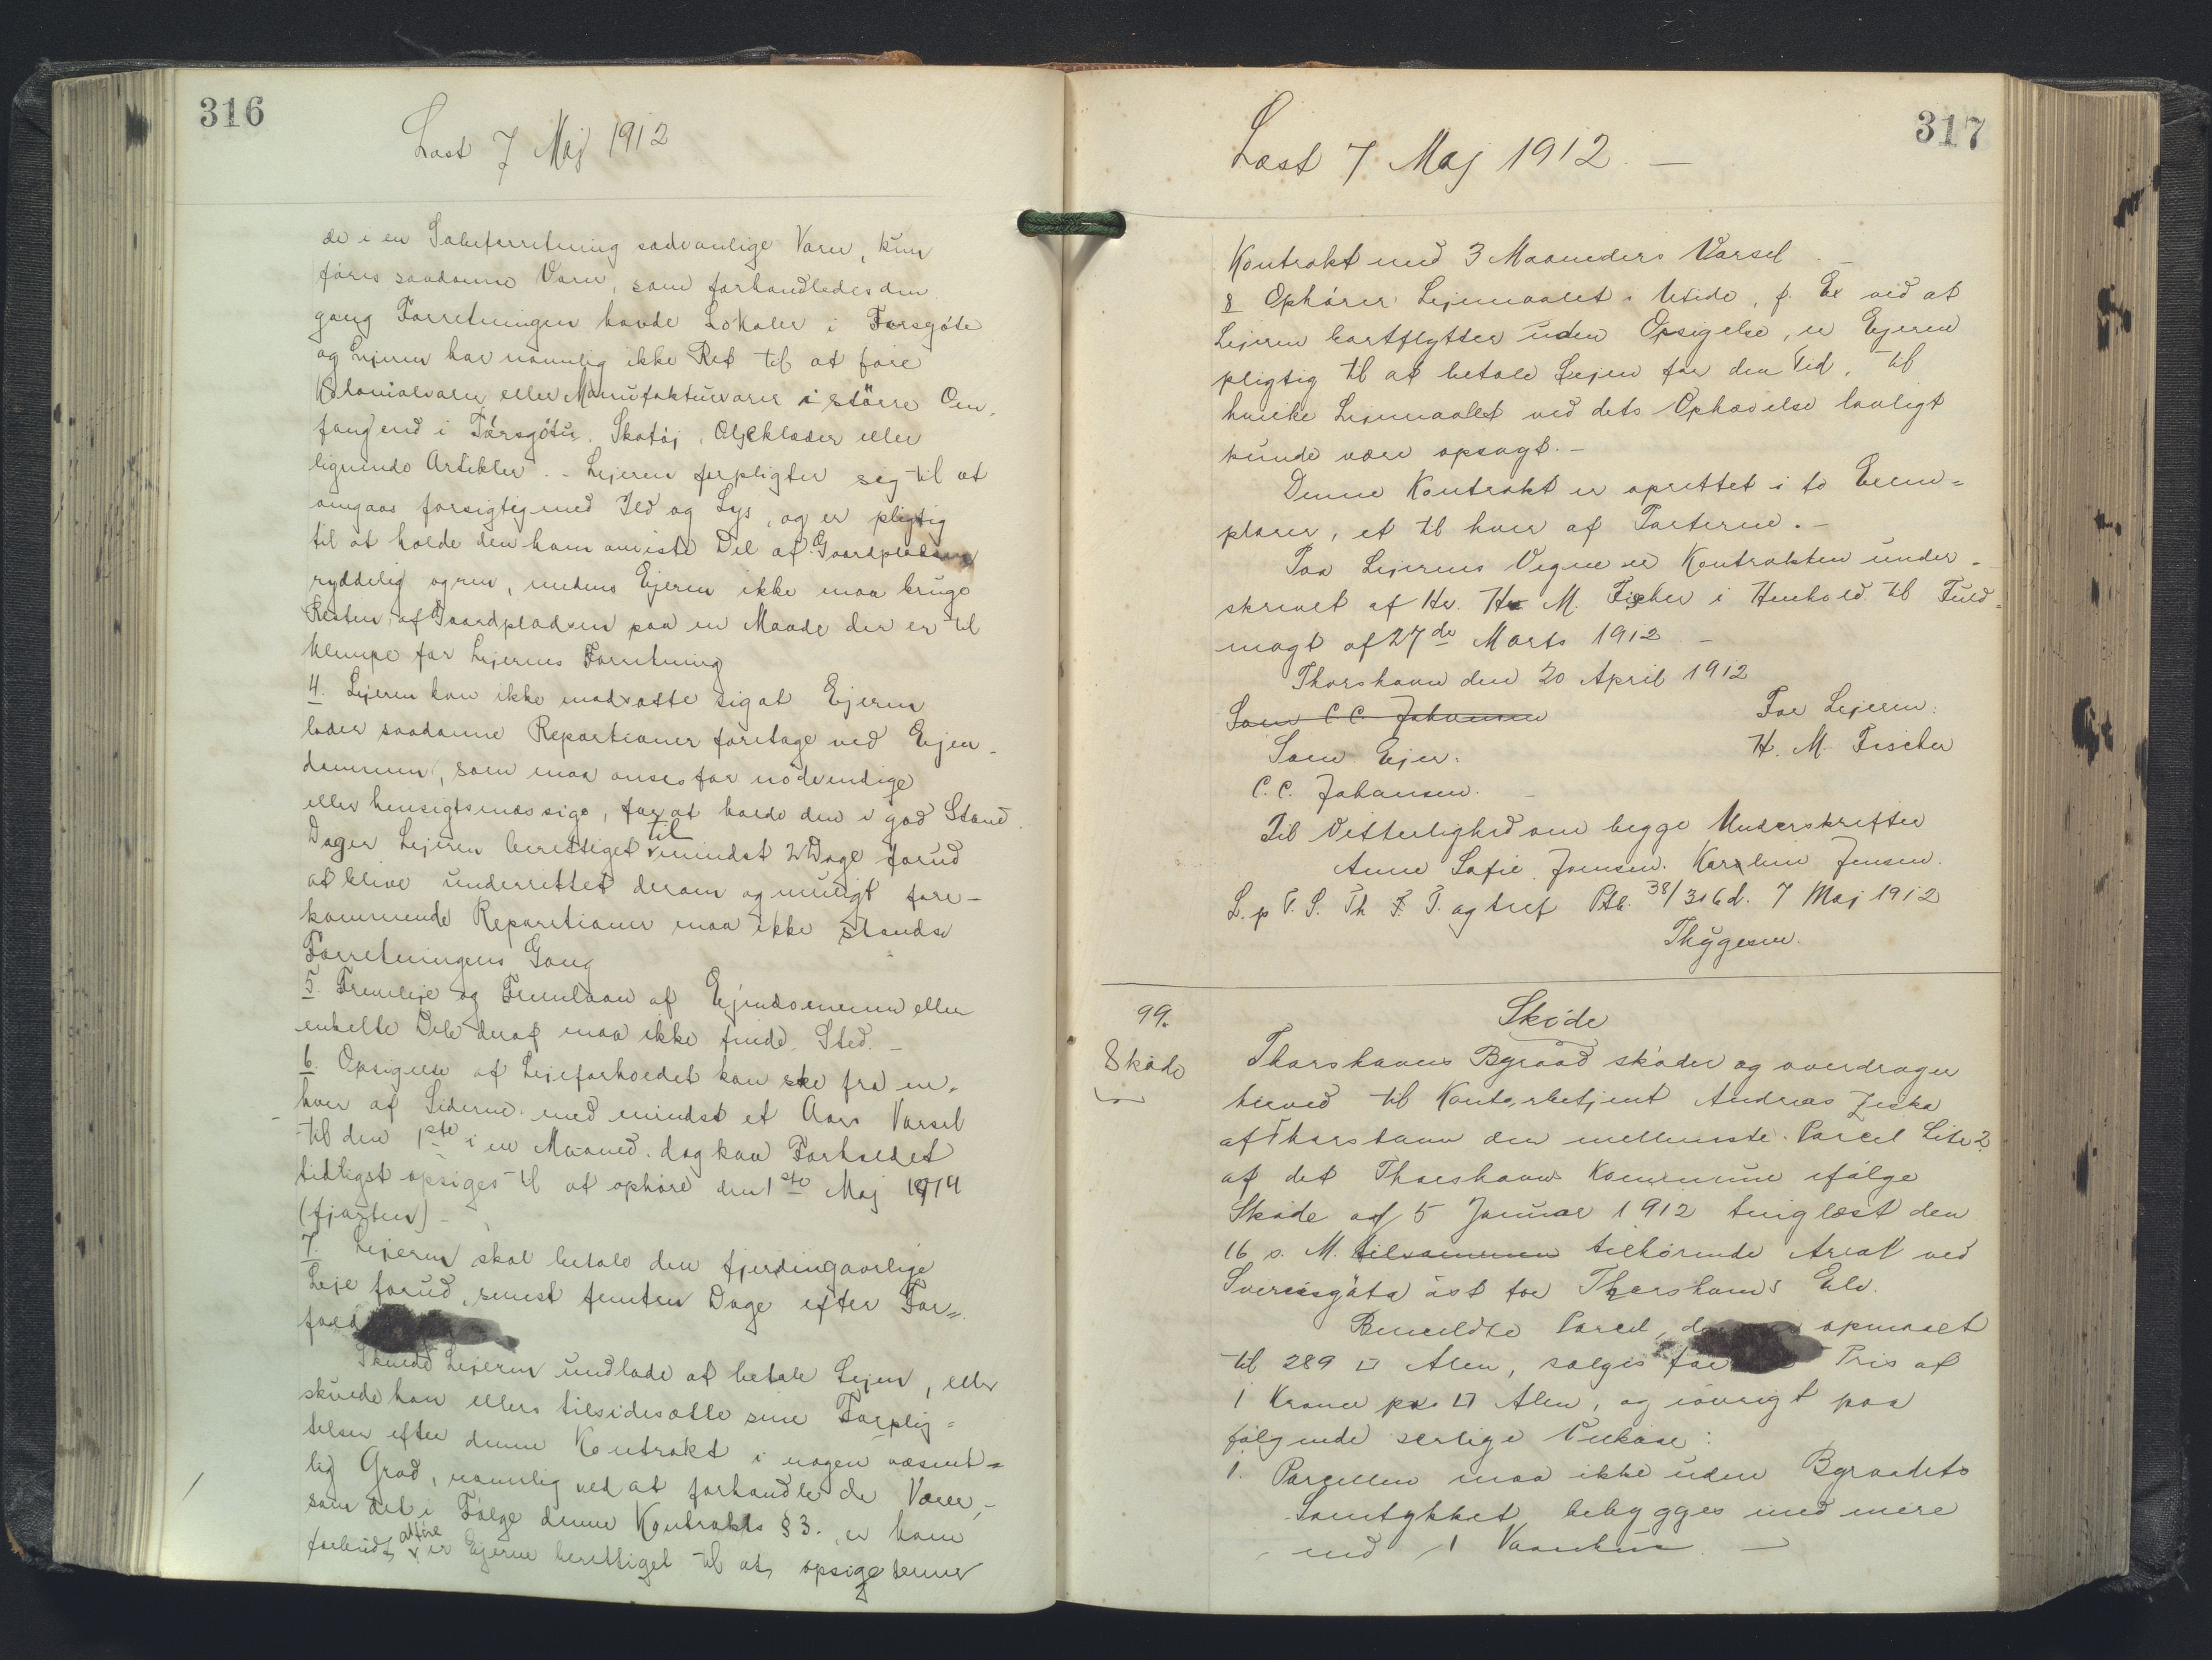 316
Læst 7 Maj 1912
de i en Sæbeforretning sædvanlige Varer, kun
føres saadanne Varer, som forhandledes den
gang Forretningen havde Lokaler i Torsgøte
og Lejeren har navnlig ikke Ret til at føre
Kolonialvarer eller Manufakturvarer i større Om,
fang end i Tørsgøtu. Skotøj, Olieklæder eller
lignende Artikler. - Lejeren forpligter sig til at
omgaas forsigtig med Ild og Lys, og er pligtig
til at holde den ham anviste Del af Gaardpladsen
ryddelig og ren, medens Ejeren ikke maa bruge
Resten af Gaardpladsen paa en Maade der er til
Ulempe for Lejerens Forretning
4. Lejeren kan ikke modsætte sig at Ejeren
lader saadanne Reparationer foretage ved Ejen-
dommen, som maa anses for nødvendige
eller hensigtsmæssige, for at holde den i god Stand.
Dog er Lejeren berettiget til mindst 2 Dage forud
at blive underrettet derom og muligt fore-
kommende Reparationer maa ikke standse
Forretningens Gang
5. Fremleje og Fremlaan af Ejendommen eller
enkelte Dele deraf maa ikke finde Sted. -
6. Opsigelse af Lejeforholdet kan ske fra en-
hver af Siderne med mindst et Aars Varsel
til den 1ste i en Maaned, dog kan Forholdet
tidligst opsiges til at ophøre den 1ste Maj 1914
(fjorten) -
7. Lejeren skal betale den fjerdingaarlige
Leje forud, senest femten Dage efter For=
fald
Skulde Lejeren undlade at betale Lejen, eller
skulde han ellers tilsidesætte sine Forplig=
telser efter denne Kontrakt i nogen væsent=
lig Grad, navnlig ved at forhandle de Varer,-
som det i Følge denne Kontrakts § 3. er ham
forbudt at føre er Ejeren berettiget til at opsige denne
317
Læst 7 Maj 1912. -
Kontrakt med 3 Maaneders Varsel. -
8 Ophører Lejemaalet i Utide, f. Ex ved at
Lejeren bortflytter uden Opsigelse, er Lejeren
pligtig til at betale Lejen for den Tid, til
hvilke Lejemaalet ved dets Ophævelse lovligt
kunde være opsagt. -
Denne Kontrakt er oprettet i to Exem=
plarer, et til hver af Parterne. -
Paa Lejerens Vegne er Kontrakten under-
skrevet af Hr. H. M. Fischer i Henhold til Fuld-
magt af 27de Marts 1912 -
Thorshavn den 20 April 1912
Som C. C. Johansen
For Lejeren:
Som Ejer:
H. M. Fischer
C. C. Johansen. -
Til Vitterlighed om begge Underskrifter
Anne Sofie Jensen. Karoline Jensen.
L. p V. S. Th F. T. og tref Ptb. 38/316 d. 7 Maj 1912
Thygesen.
99.
Skøde
Skøde
Thorshavns Byraad skøder og overdrager
herved til Kontorbetjent Andreas Ziska
af Thorshavn den mellemste Parcel Litr 2
af det Thorshavns Kommune ifølge
Skøde af 5 Januar 1912 tinglæst den
16 s. M. tilsammen tilhørende Areal ved
Sverrisgøta øst for Thorshavns Elv.
Bemeldte Parcel, opmaalt
til 289 □ Alen, sælges for Pris af
1 Krone pr. □ Alen, og iøvrigt paa
følgende særlige Vilkaar:
1. Parcellen maa ikke uden Byraadets
Samtykket bebygges med mere
end 1 Vaanhus -